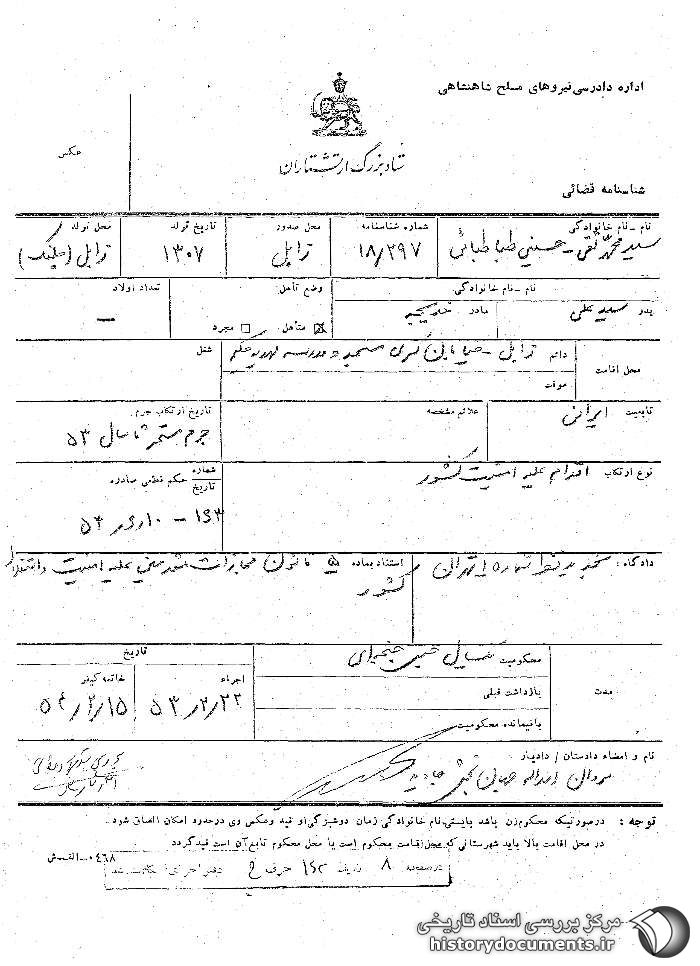 اداره دادرسی نیروهای مسلح شاهنشاهی
ستاد بزرگ ارتشتاران
عکس
شناسنامه قضائی
نام - نام خانوادگی
سید محمد تقی - حسینی طباطبائی
شماره شناسنامه
۱۸/۲۹۷
محل صدور
زابل
تاریخ تولد
۱۳۰۷
محل تولد
زابل
نام - نام خانوادگی
پدر سید علی
مادر خدیجه
وضع تأهل
متأهل مجرد
تعداد اولاد
—
محل اقامت
دائم زابل - خیابان مسجد و مدرسه
موقت
شغل
تابعیت ایرانی
علائم مشخصه
تاریخ ارتکاب جرم
جرم مستمر تا سال ۵۳
نوع ارتکاب اقدام علیه امنیت کشور
شماره
تاریخ
حکم قطعی صادره
دادگاه : تجدید نظر شماره تهران
استناد بماده ۵ قانون مجازات مقدمین علیه امنیت و استقلال کشور
مدت
محکومیت یکسال حبس جنحه‌ای
بازداشت قبلی
باقیمانده محکومیت
تاریخ
اجراء
خاتمه کیفر
۵۴/۲/۱۵
نام و امضاء دادستان / دادیار
توجه : درصورتیکه محکوم زن باشد بایستی نام خانوادگی زمان دوشیزگی او قید وعکس وی درحدود امکان الصاق شود .
در محل اقامت بالا باید شهرستانی که محل اقامت محکوم است یا محل محکوم تابع آن است قید گردد
۰۴۶۸-الف‌ش
در صفحه ۸ ردیف ۱۴۲ حرف ح دفتر اجرای احکام ثبت شد
مرکز بررسی اسناد تاریخی
historydocuments.ir